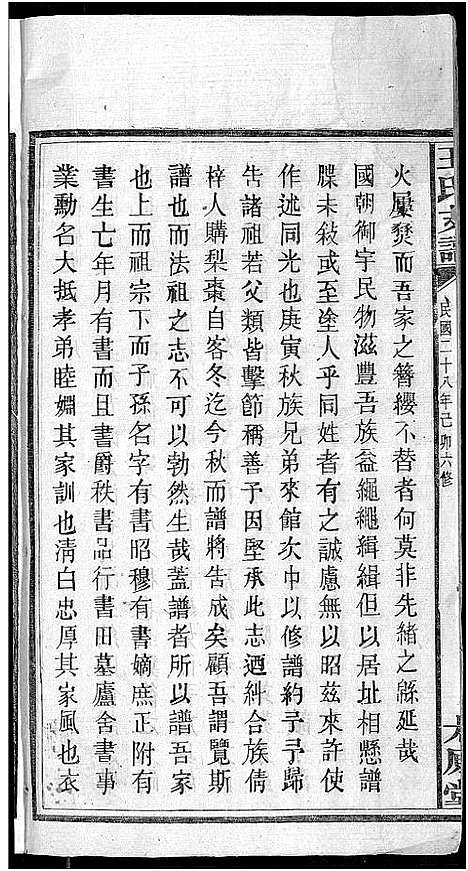 王氏支譜
民國二十八年己卯六修
大原堂
火屢燹而吾家之簪纓不替者何莫非先緒之緜延哉
國朝御宇民物滋豐吾族益繩繩緝緝但以居址相懸譜
牒未敍或至塗人乎同姓者有之誠慮無以昭茲來許使
作述同光也庚寅秋族兄弟來館次中以修譜約予予歸
告諸祖若父類皆擊節稱善予因堅承此志迺糾合族倩
梓人購梨棗自客冬迄今秋而譜將告成矣顧吾謂覽斯
譜也而法祖之志不可以勃然生哉蓋譜者所以譜吾家
也上而祖宗下而子孫名字有書昭穆有書嫡庶正附有
書生亡年月有書而且書爵秩書品行書田墓廬舍書事
業勳名大抵孝弟睦婣其家訓也淸白忠厚其家風也衣